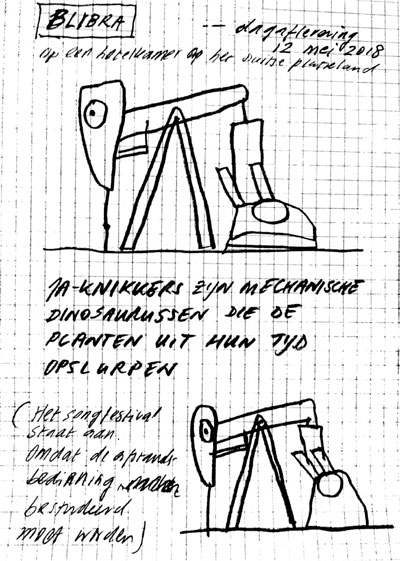 BLIBRA
-- dagaflevering
12 mei 2018
op een hotelkamer op het Duitse platteland
JA-KNIKKERS ZIJN MECHANISCHE
DINOSAURUSSEN DIE DE
PLANTEN UIT HUN TIJD
OPSLURPEN
(Het songfestival
staat aan.
omdat de afstands
bediening
bestudeerd
moet worden)